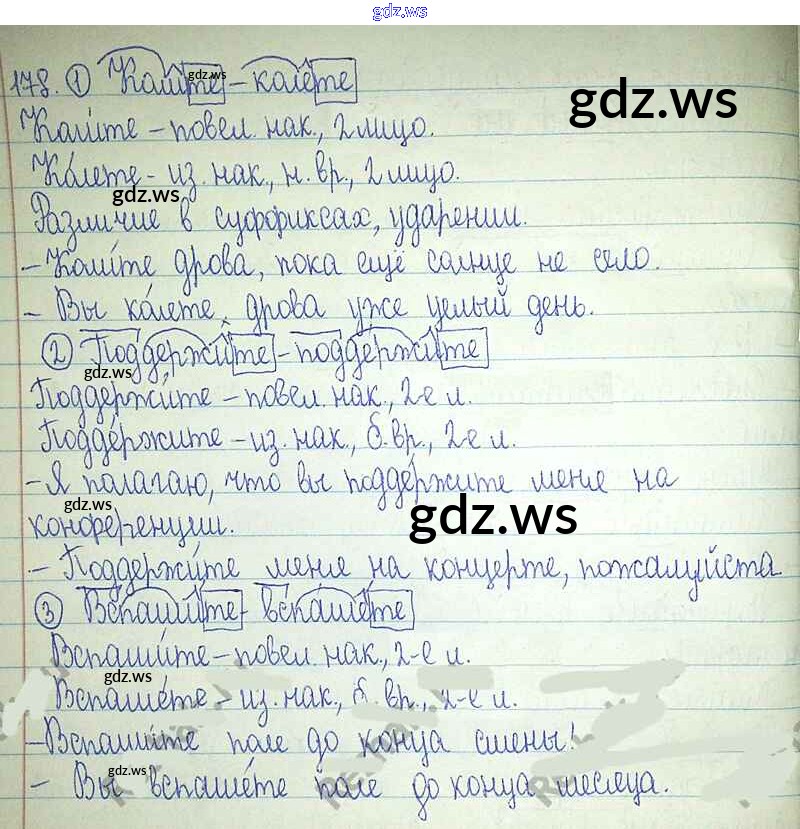 gdz.ws
178. ① Колите – колете
gdz.ws
gdz.ws
Колите – повел. нак., 2 лицо.
Колете – из. нак., н. вр., 2 лицо.
gdz.ws
Различие в суффиксах, ударении.
– Колите дрова, пока ещё солнце не село.
– Вы колете дрова уже целый день.
② Поддержите – поддержите
gdz.ws
Поддержите – повел. нак., 2-е л.
Поддержите – из. нак., б. вр., 2-е л.
– Я полагаю, что вы поддержите меня на
gdz.ws
gdz.ws
конференции.
– Поддержите меня на концерте, пожалуйста
③ Вспашите – вспашете
Вспашите – повел. нак., 2-е л.
gdz.ws
Вспашете – из. нак., б. вр., 2-е л.
– Вспашите поле до конца смены!
gdz.ws
– Вы вспашете поле до конца месяца.